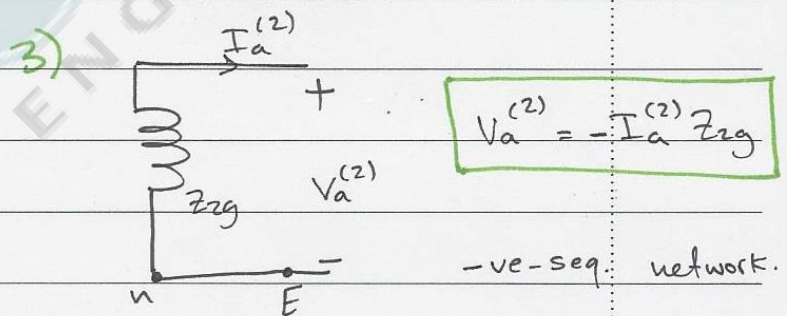 3)
I_a^(2)
+
V_a^(2) = -I_a^(2) Z_2g
Z_2g
V_a^(2)
-
-ve-seq. network.
n
E
ENG